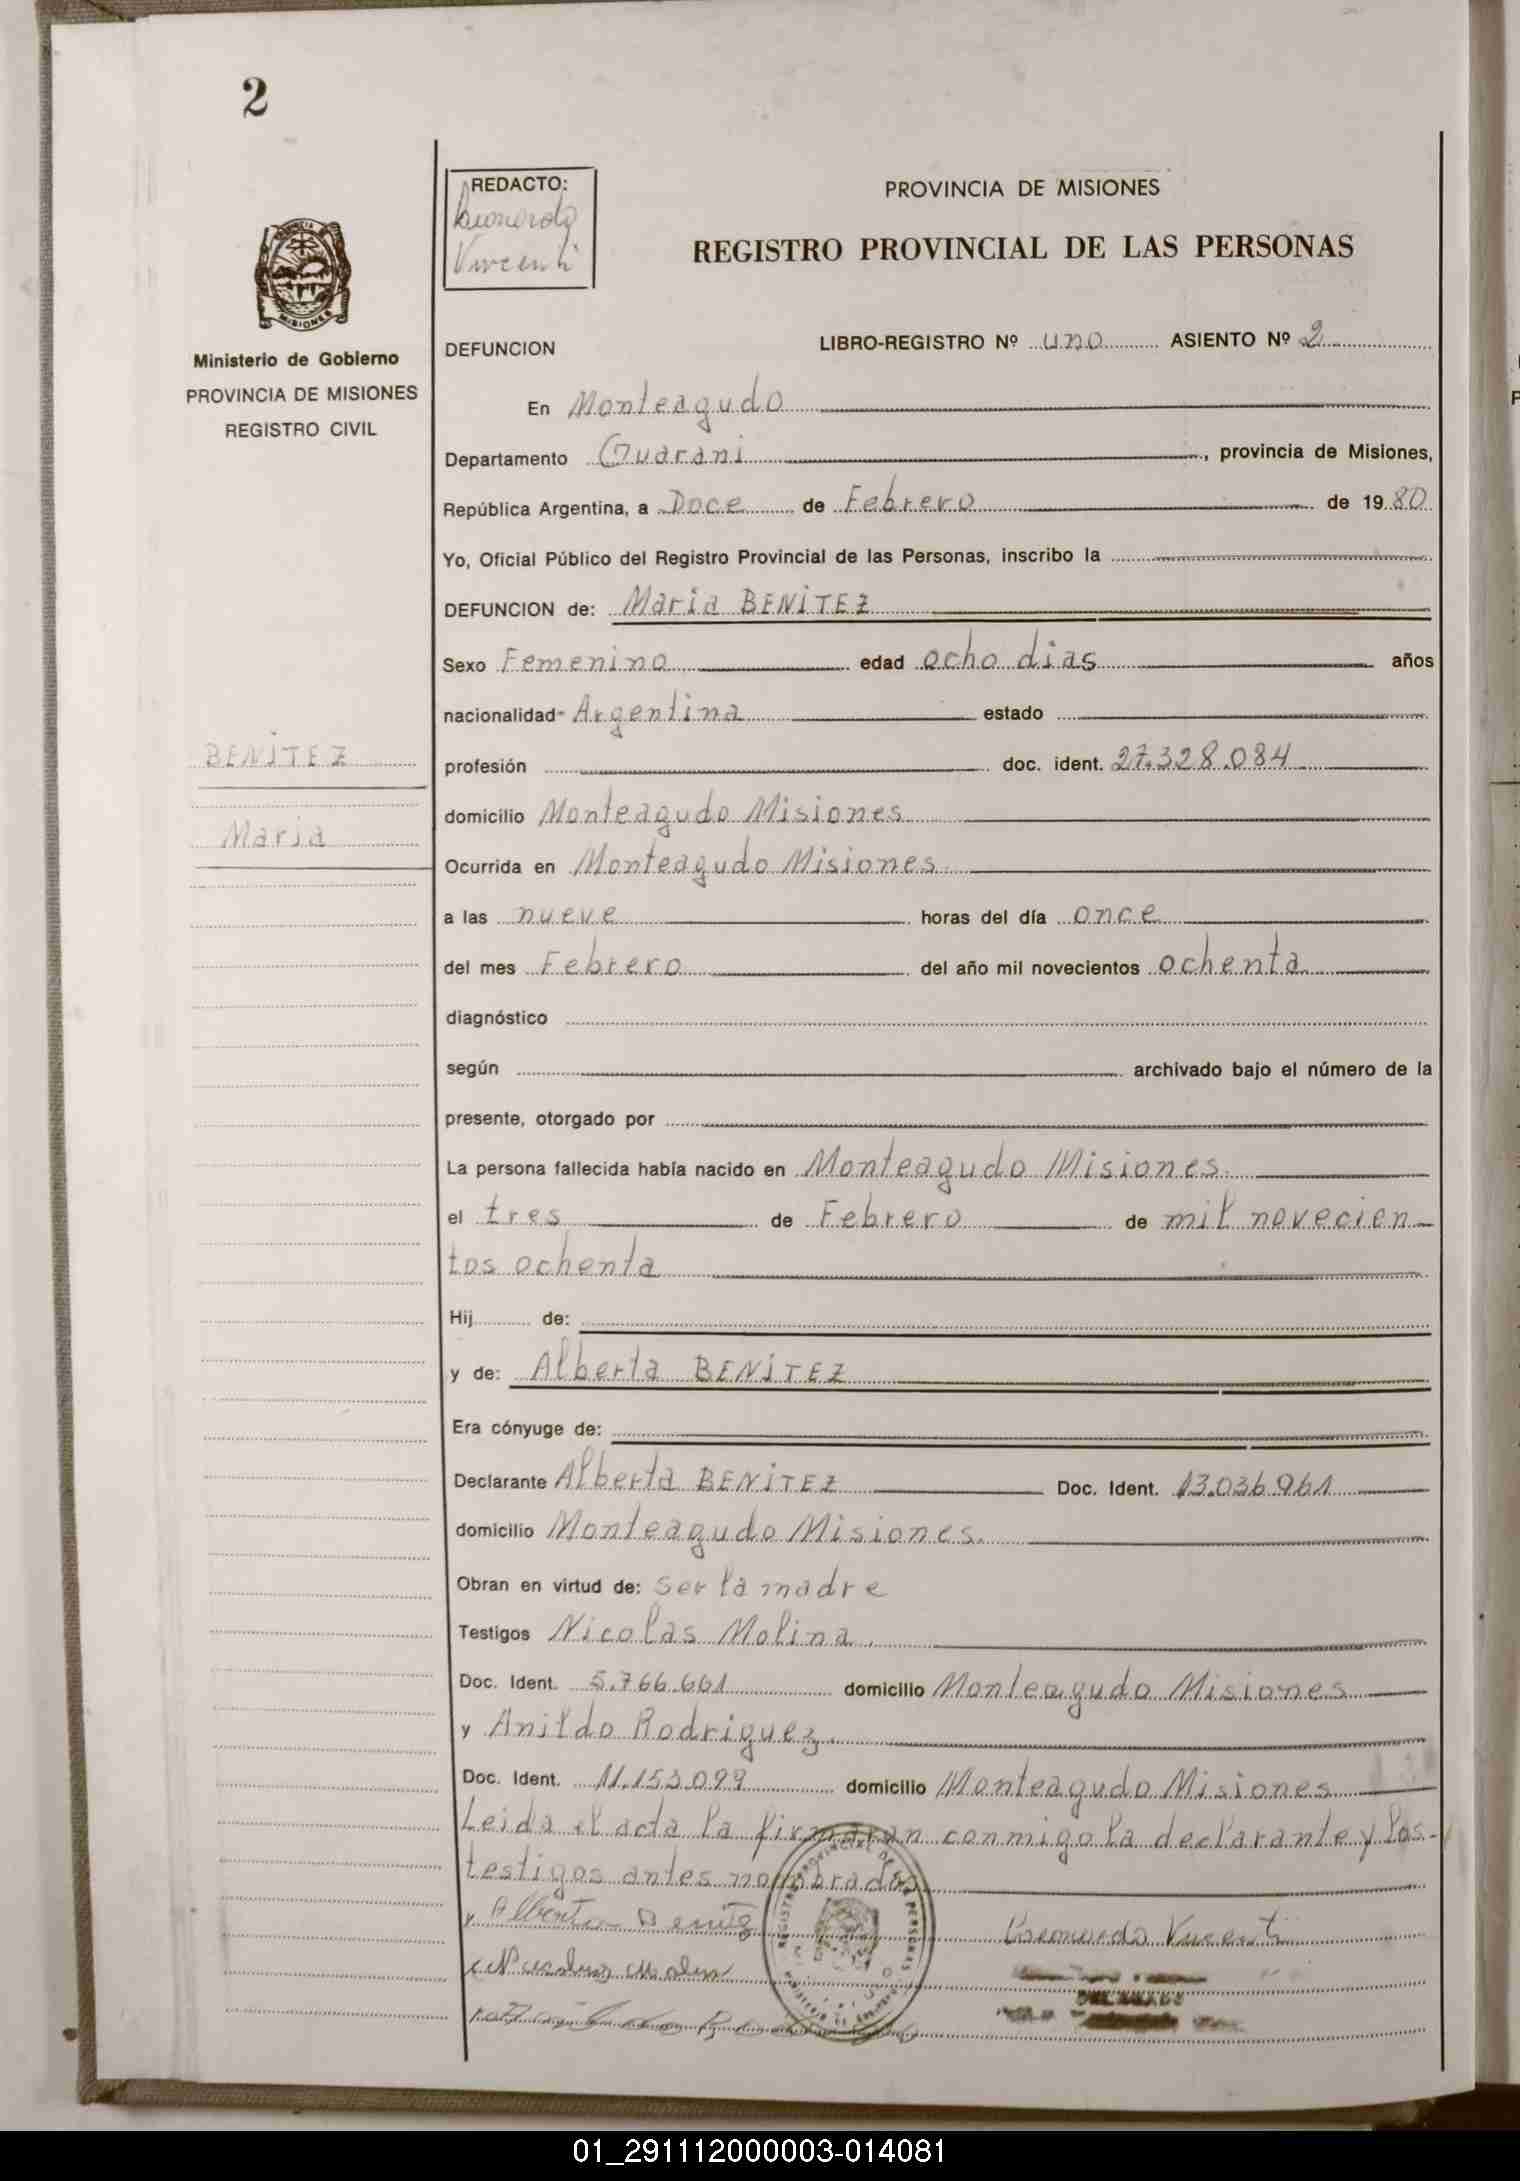 2
REDACTO:
PROVINCIA DE MISIONES
REGISTRO PROVINCIAL DE LAS PERSONAS
MISIONES
Ministerio de Gobierno
PROVINCIA DE MISIONES
REGISTRO CIVIL
BENITEZ
Maria
DEFUNCION LIBRO-REGISTRO Nº uno ASIENTO Nº 2
En Monteagudo
Departamento Guarani, provincia de Misiones,
República Argentina, a Doce de Febrero de 1980
Yo, Oficial Público del Registro Provincial de las Personas, inscribo la
DEFUNCION de: Maria BENITEZ
Sexo Femenino edad ocho dias años
nacionalidad Argentina estado
profesión doc. ident. 27.328.084
domicilio Monteagudo Misiones
Ocurrida en Monteagudo Misiones
a las nueve horas del día once
del mes Febrero del año mil novecientos ochenta
diagnóstico
según archivado bajo el número de la
presente, otorgado por
La persona fallecida había nacido en Monteagudo Misiones.
el tres de Febrero de mil novecien
tos ochenta
Hij de:
y de: Alberta BENITEZ
Era cónyuge de:
Declarante Alberta BENITEZ Doc. Ident. 13.036.961
domicilio Monteagudo Misiones.
Obran en virtud de: ser la madre
Testigos Nicolas Molina.
Doc. Ident. 5.766.661 domicilio Monteagudo Misiones
y Anildo Rodriguez.
Doc. Ident. 11.153.099 domicilio Monteagudo Misiones
Leida el acta la firmaran conmigo la declarante y los
testigos antes nombrados
Alberta Benitez
REGISTRO PROVINCIAL DE LAS PERSONAS
01_291112000003-014081